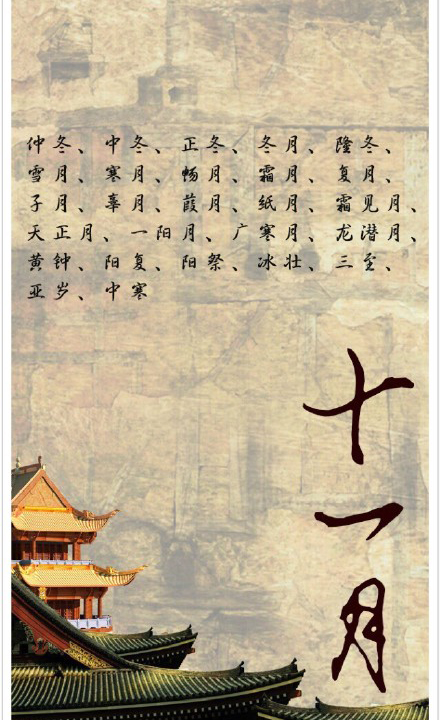 仲冬、中冬、正冬、冬月、隆冬、
雪月、寒月、畅月、霜月、复月、
子月、辜月、葭月、纸月、霜见月、
天正月、一阳月、广寒月、龙潜月、
黄钟、阳复、阳祭、冰壮、三至、
亚岁、中寒
十一月